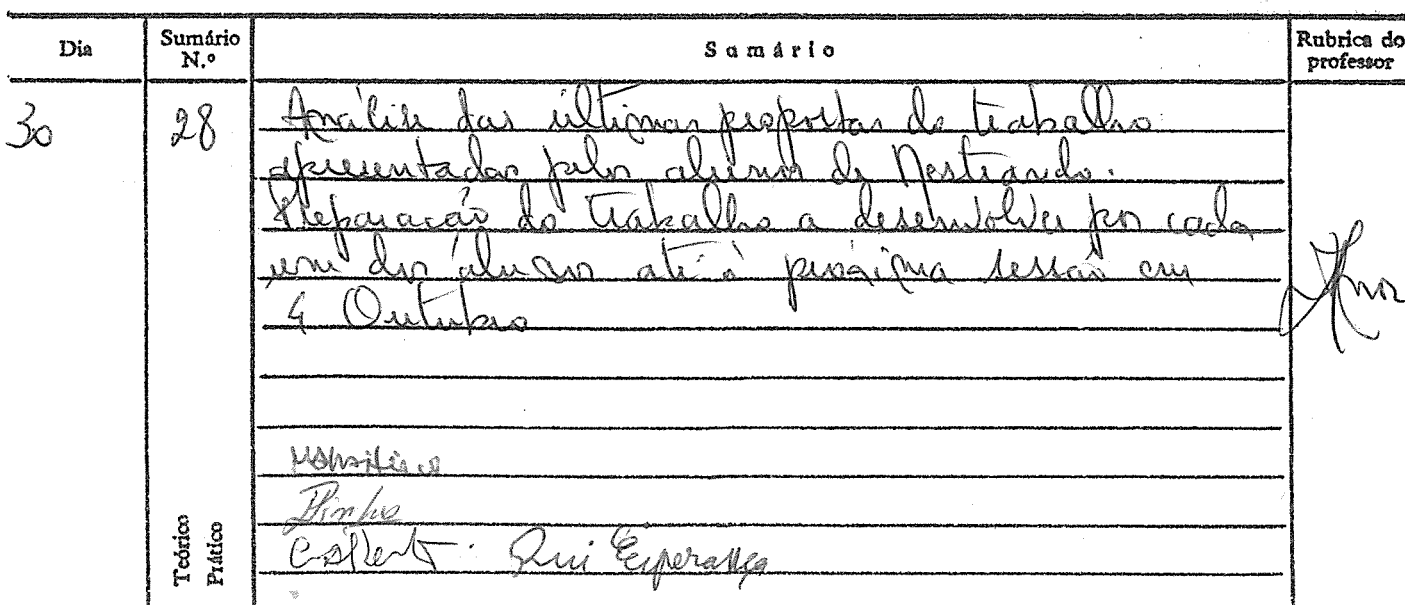 Dia Sumário N.º Sumário Rubrica do professor
30 28 Análise das últimas propostas de trabalho
apresentadas pelos alunos de Mestrando.
Preparação do trabalho a desenvolver por cada
um dos alunos até à próxima sessão em
4 Outubro
Pinho
Rui Esperança
Teórico
Prático